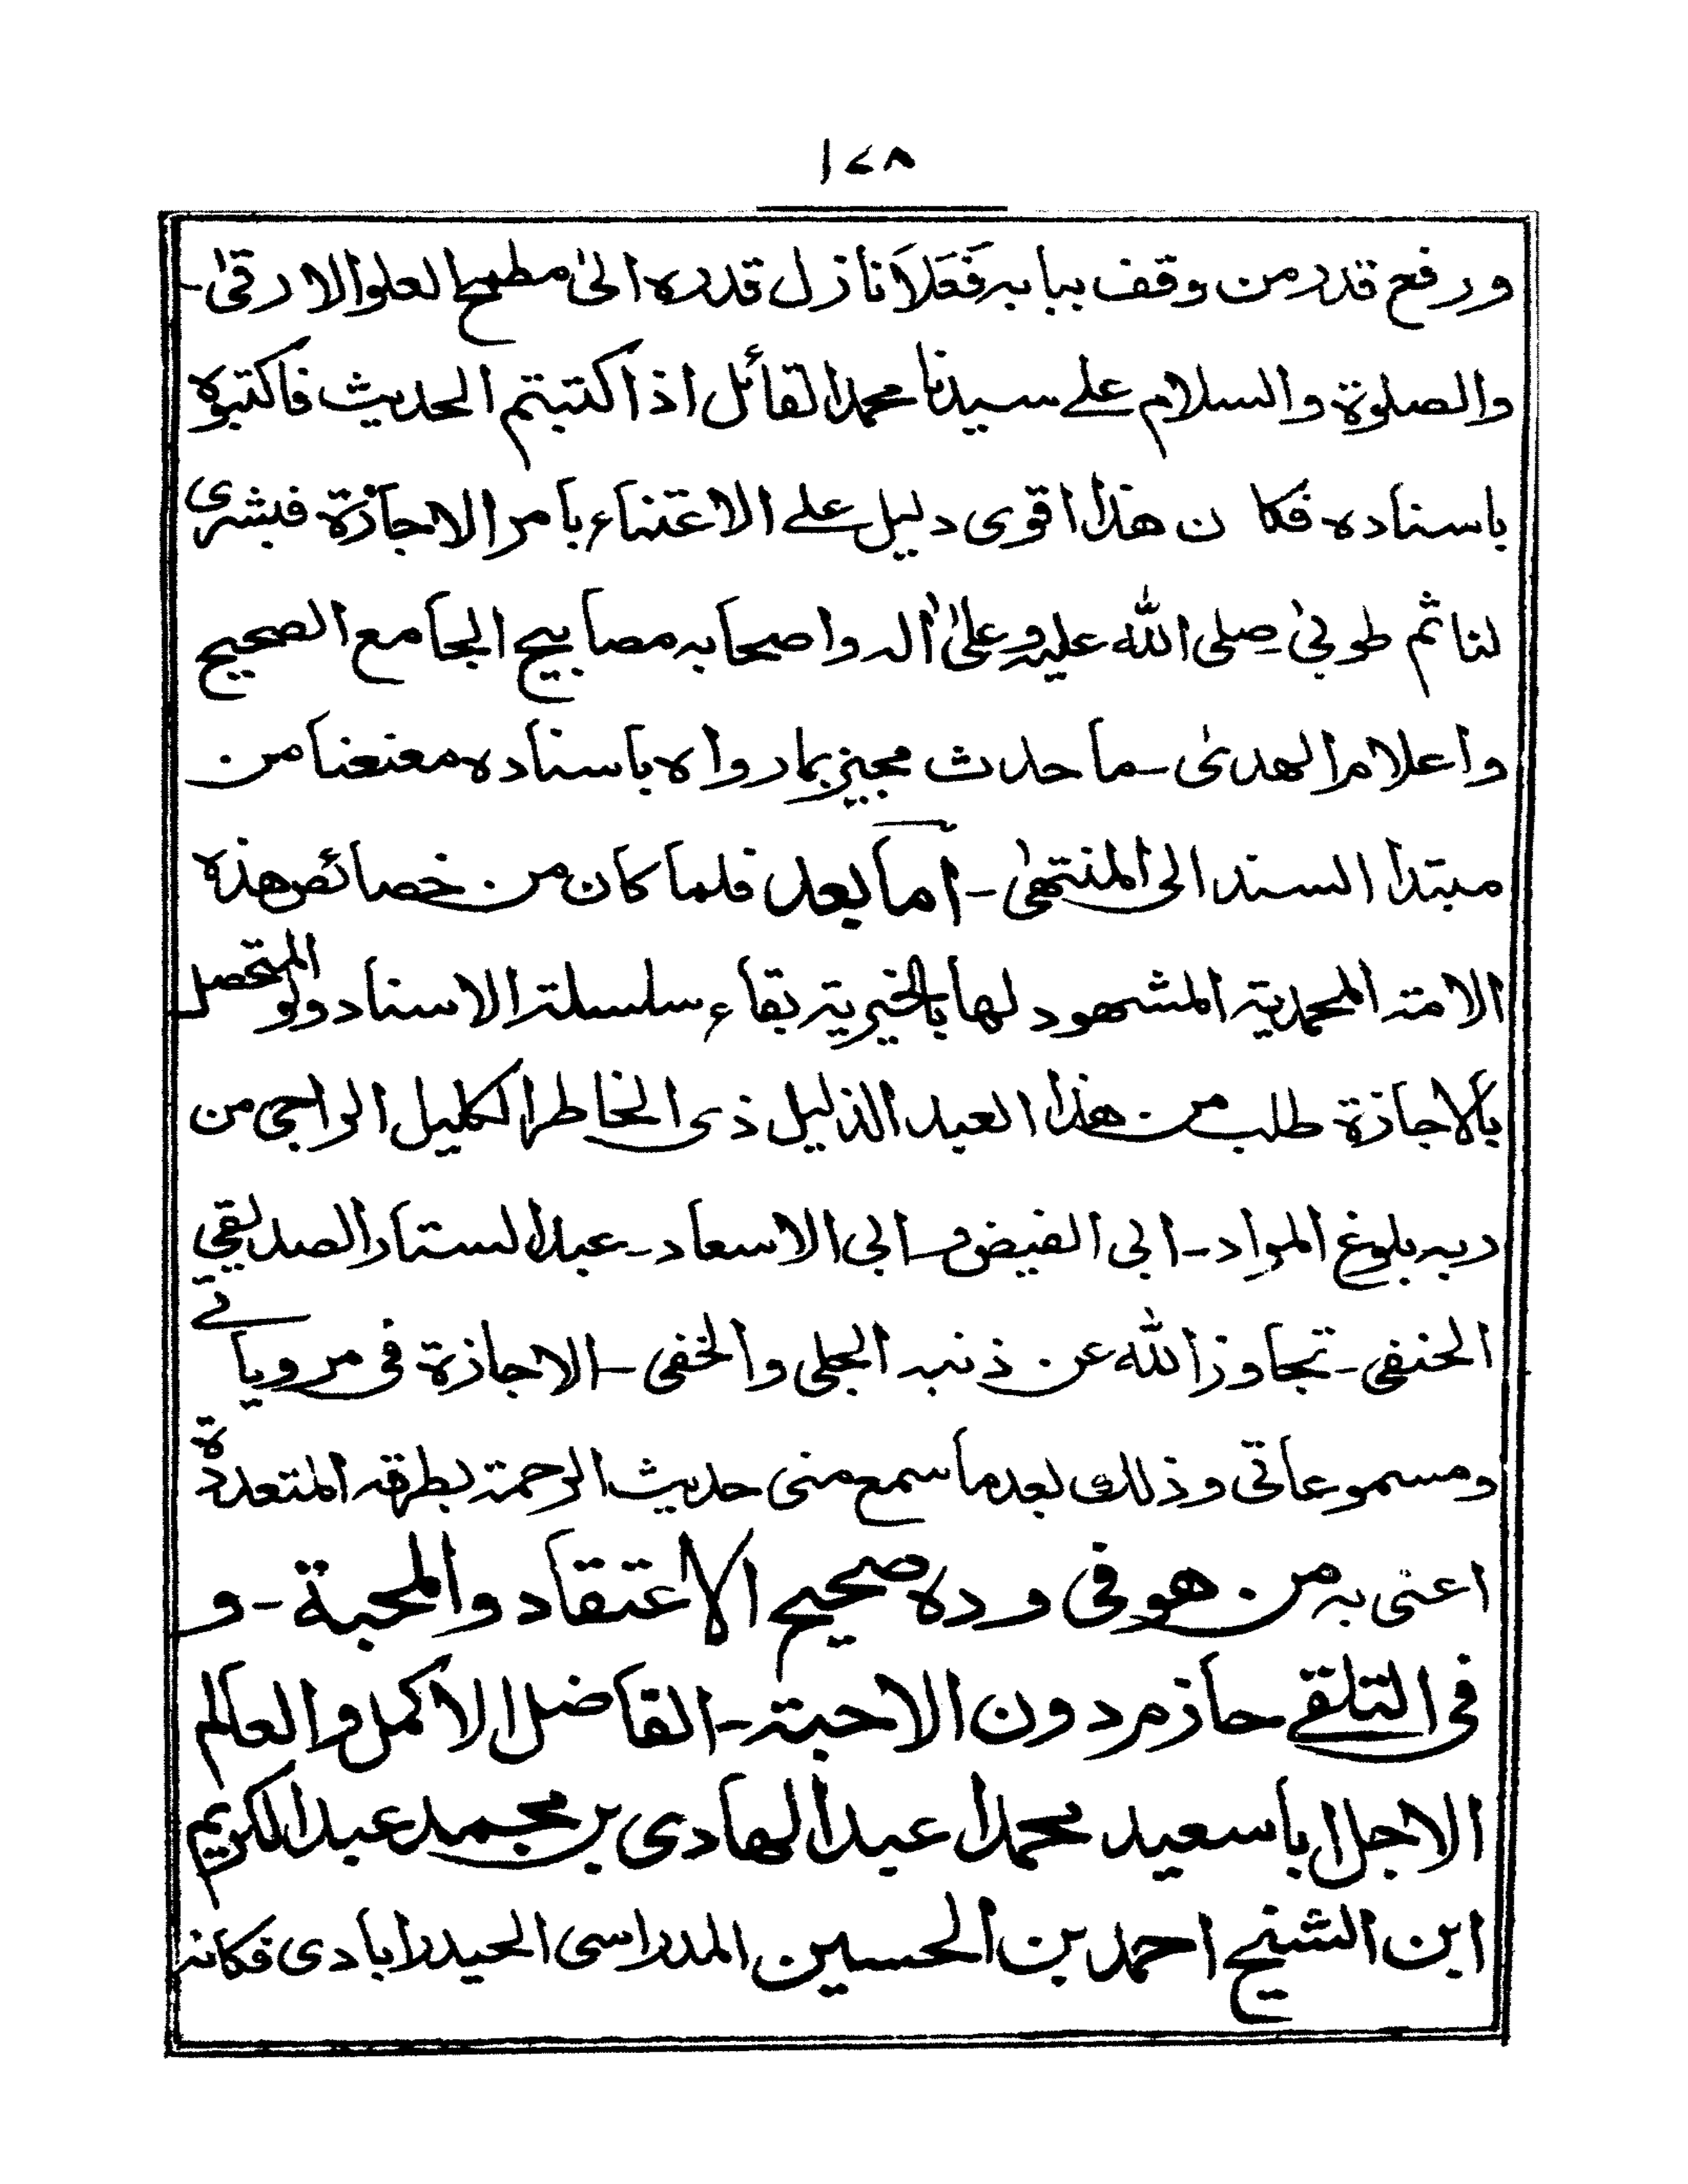 ۱۷۸
ورفع قدر من وقف ببابه فَعَلَا نازل قدره الیٰ مطمح العلو الارقیٰ-
والصلوة والسلام علے سيدنا محمد القائل اذا كتبتم الحديث فاكتبوه
باسناده- فكان هذا اقوى دليل علے الاعتناء بامر الاجازة- فبشرى
لنا ثم طوبیٰ صلى الله عليه وعلیٰ اله واصحابه مصابيح الجامع الصحيح
واعلام الهدیٰ- ما حدث مجيز بما رواه باسناده معنعنا من
مبتدا السند الى المنتهیٰ- اما بعد فلما كان من خصائص هذه
الامة المحمدية المشهود لها بالخيرية بقاء سلسلة الاسناد ولو المتحصل
بالاجازة- طلب من هذا العبد الذليل ذى الخاطر الكليل الراجى من
ربه بلوغ المراد- ابى الفيض و ابى الاسعاد- عبد الستار الصديقي
الحنفى- تجاوز الله عن ذنبه الجلى والخفى- الاجازة فى مروياتے
ومسموعاتى وذلك بعد ما سمع منى حديث الرحمة بطرقه المتعددة
اعنى به من هو فى وده صحيح الاعتقاد والمحبة- و
فى التلقے حازم دون الاحبة- الفاضل الاكمل والعالم
الاجل اباسعيد محمد عبد الهادى بن محمد عبد الكريم
ابن الشيخ احمد بن الحسين المدراسى الحيدرابادى فكانه